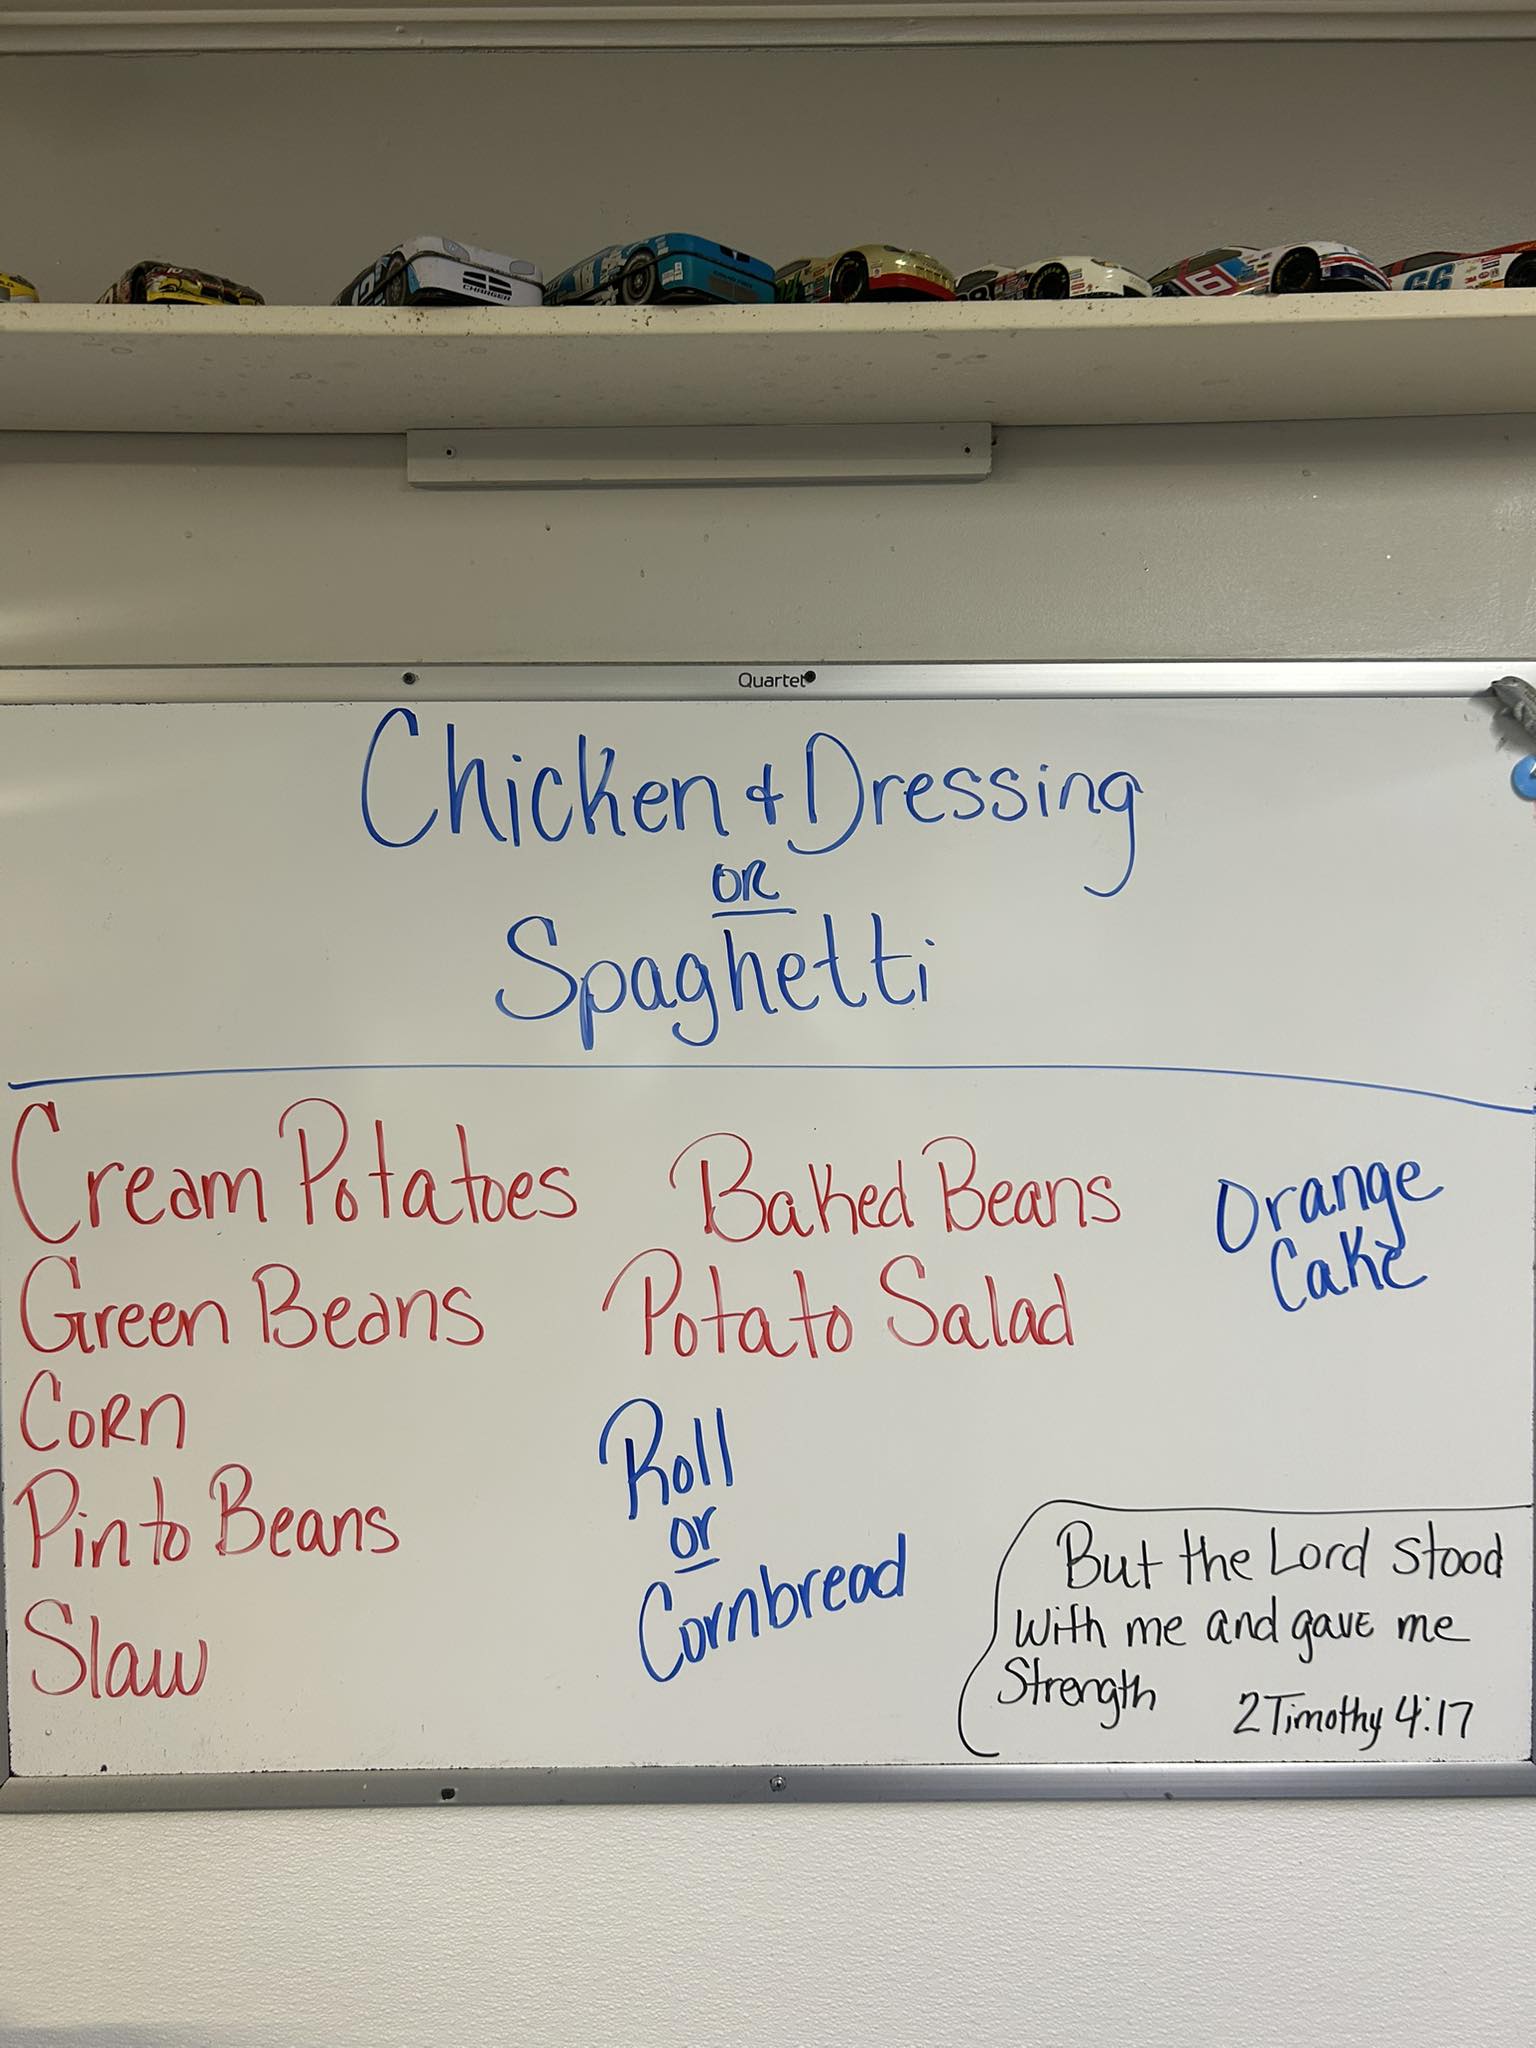 CHARGER
6
66
Quartet
Chicken & Dressing
OR
Spaghetti
Cream Potatoes
Green Beans
Corn
Pinto Beans
Slaw
Baked Beans
Potato Salad
Roll
or
Cornbread
Orange
Cake
But the Lord stood
with me and gave me
Strength
2 Timothy 4:17